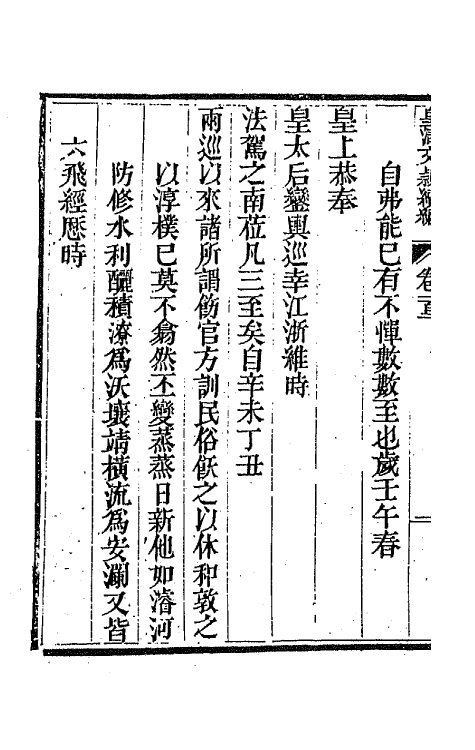 皇清文穎續編 卷首
自弗能已有不憚數數至也歲壬午春
皇上恭奉
皇太后鑾輿巡幸江浙維時
法駕之南蒞凡三至矣自辛未丁丑
兩巡以來諸所謂飭官方訓民俗飫之以休和敦之
以淳樸已莫不翕然丕變蒸蒸日新他如濬河
防修水利釃積潦爲沃壤靖橫流爲安瀾又皆
六飛經歷時